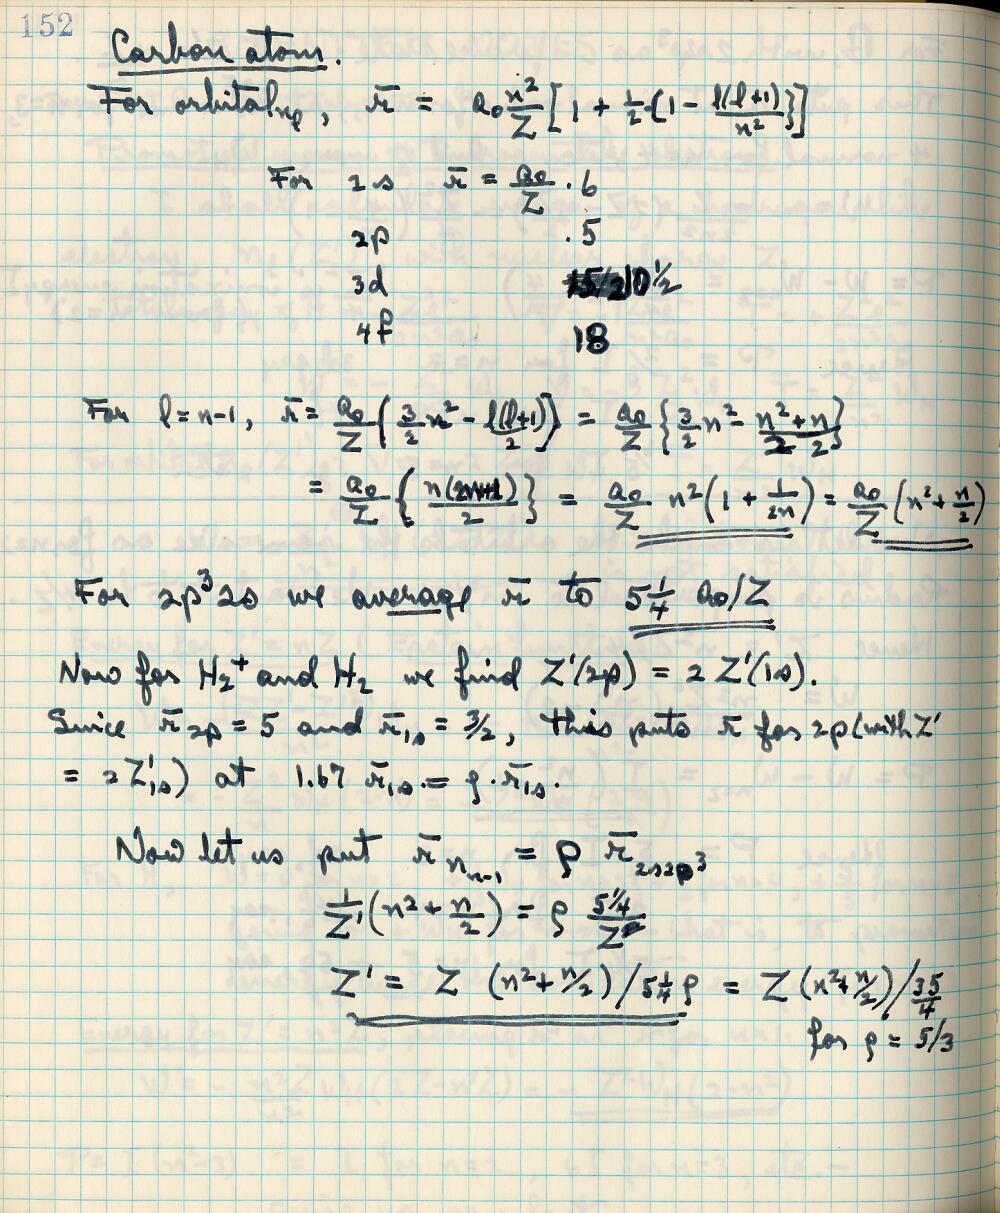 152
Carbon atom.
For orbital nl, r̄ = a₀ n²/Z [1 + ½{1 − l(l+1)/n²}]
For 2s r̄ = a₀/Z · 6
2p · 5
3d 10½
4f 18
For l = n−1, r̄ = a₀/Z {3/2 n² − l(l+1)/2} = a₀/Z {3/2 n² − n²+n/2}
= a₀/Z {n(2n+1)/2} = a₀/Z n²(1 + 1/2n) = a₀/Z (n² + n/2)
For 2p³2s we average r̄ to 5¼ a₀/Z
Now for H₂⁺ and H₂ we find Z'(2p) = 2 Z'(1s).
Since r̄ 2p = 5 and r̄ 1s = 3/2, this puts r̄ for 2p (with Z'
= 2Z'1s) at 1.67 r̄1s. = ρ · r̄1s.
Now let us put r̄ n n−1 = ρ r̄ 2s2p³
1/Z' (n² + n/2) = ρ 5¼/Z
Z' = Z (n² + n/2) / 5¼ ρ = Z (n² + n/2) / 35/4
for ρ = 5/3